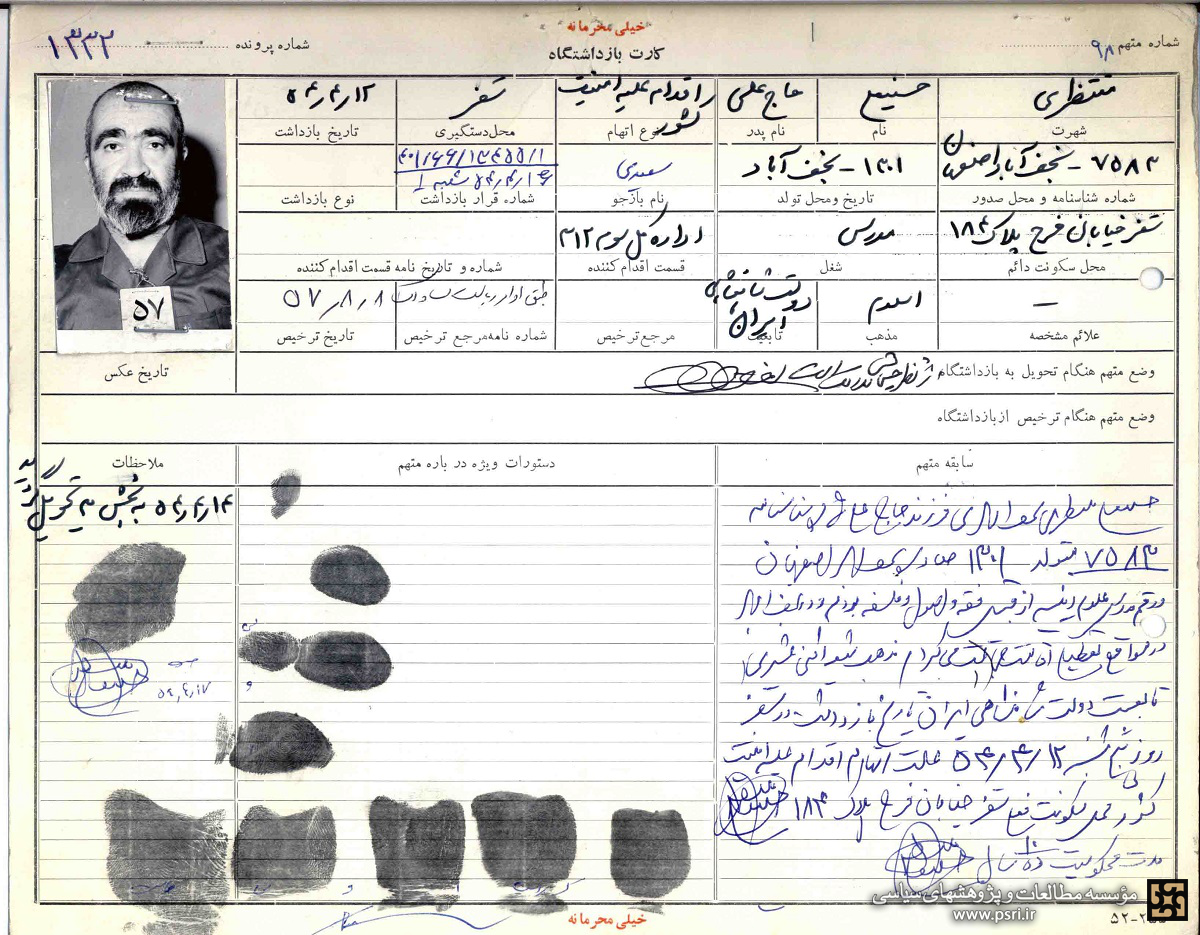 خیلی محرمانه
شماره متهم ۹۸
کارت بازداشتگاه
شماره پرونده ۱۳۳۲
منتظری
حسینعلی
حاج علی
اقدام علیه امنیت کشور
سقز
۱۲/۴/۵۴
شهرت
نام
نام پدر
نوع اتهام
محل‌دستگیری
تاریخ بازداشت
۷۵۸۳ - نجف آباد اصفهان
۱۳۰۱ - نجف آباد
سعیدی
شماره شناسنامه و محل صدور
تاریخ ومحل تولد
نام بازجو
شماره قرار بازداشت
نوع بازداشت
سقز خیابان فرح پلاک ۱۸۴
مدرس
اداره کل سوم ۳۱۲
محل سکونت دائم
شغل
قسمت اقدام کننده
شماره و تاریخ نامه قسمت اقدام کننده
—
اسلام
دولت شاهنشاهی ایران
۵۷/۸/۸
علائم مشخصه
مذهب
تابعیت
مرجع ترخیص
شماره نامه‌مرجع ترخیص
تاریخ ترخیص
۵۷
تاریخ عکس
وضع متهم هنگام تحویل به بازداشتگاه
وضع متهم هنگام ترخیص ازبازداشتگاه
سابقه متهم
دستورات ویژه در باره متهم
ملاحظات
۵۴/۴/۱۴ به بخش یک تحویل گردید
حسینعلی منتظری نجف آبادی فرزند حاج علی شناسنامه
۷۵۸۳ متولد ۱۳۰۱ صادره نجف آباد اصفهان
مدرس علوم دینیه از قبیل فقه و اصول و فلسفه بودم و در نجف آباد
در مواقع تعطیل مذهب شیعه اثنی عشری
تابعیت دولت شاهنشاهی ایران تاریخ بازداشت در سقز
روز پنج شنبه ۵۴/۴/۱۲ علت اتهام اقدام علیه امنیت
کشور محل سکونت فعلی سقز خیابان فرح پلاک ۱۸۴
مدت محکومیت ده سال
۵۴/۴/۱۷
خیلی محرمانه
مؤسسه مطالعات و پژوهشهای سیاسی
www.psri.ir